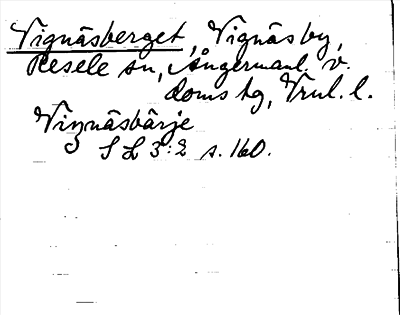 Vignäsberget, Vignäs by,
Resele sn, Ångermanl. v.
doms hg, Vnl. l.
Viŋnäsbärje
SL 3:2 s. 160.